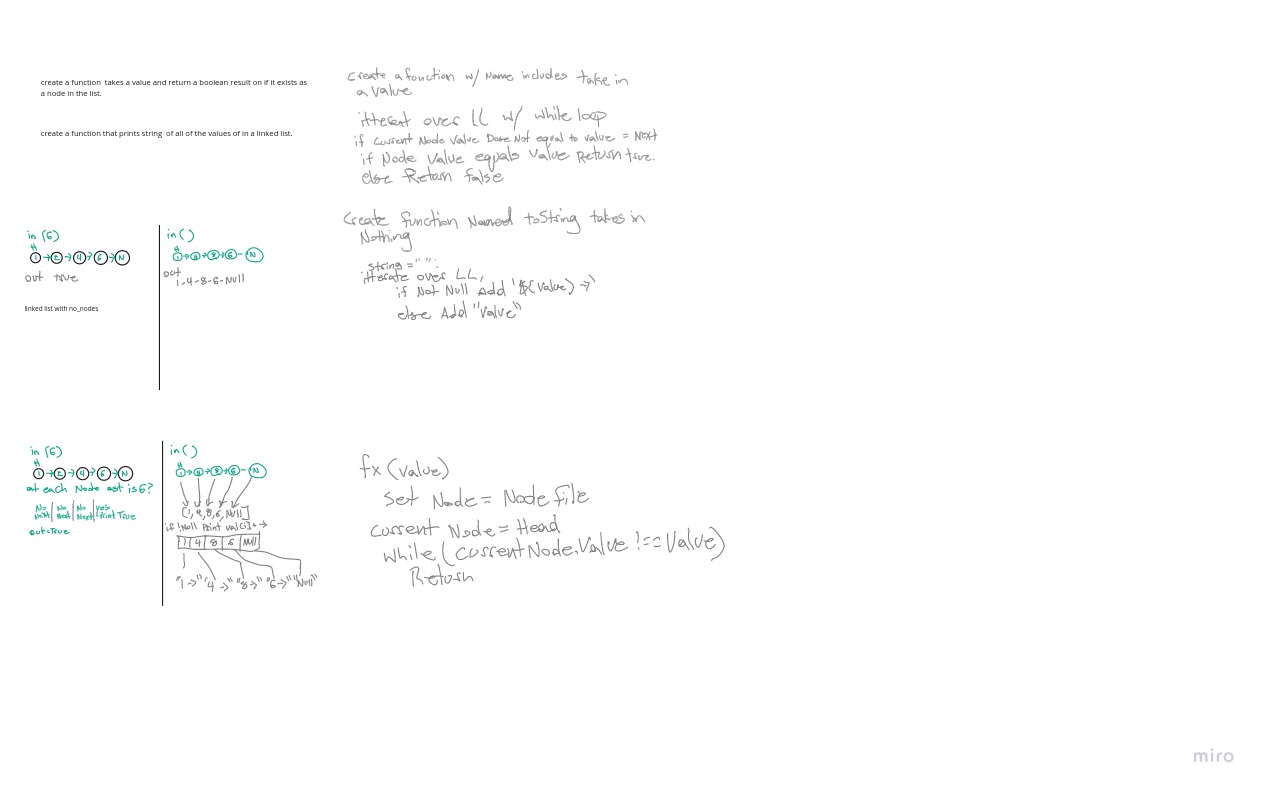 create a function takes a value and return a boolean result on if it exists as
a node in the list.
create a function that prints string of all of the values of in a linked list.
in (6)
H
1 → 2 → 4 → 6 → N
out true
linked list with no_nodes
in ( )
H
1 → 4 → 8 → 6 - N
out
1-4-8-6-Null
Create a function w/ Name includes take in
a value
itterent over LL w/ while loop
if Current Node Value Dose Not equal to value = Next
if Node Value equals Value Return true.
else Return false
Create function Named toString takes in
Nothing
string = " ";
itterate over LL,
if Not Null Add '${Value} →'
else Add "Value"
in (6)
H
1 → 2 → 4 → 6 → N
at each Node ask is 6?
No next | No Next | No Next | Yes Print True
out=True
in ( )
H
1 → 4 → 8 → 6 - N
[1, 4, 8, 6, Null]
if !Null Print val[i] + →
1 4 8 6 Null
"1→" "4→" "8→" "6→" "Null"
fx (value)
Set Node = Node file
current Node = Head
while ( current Node.Value !== Value)
Return
miro